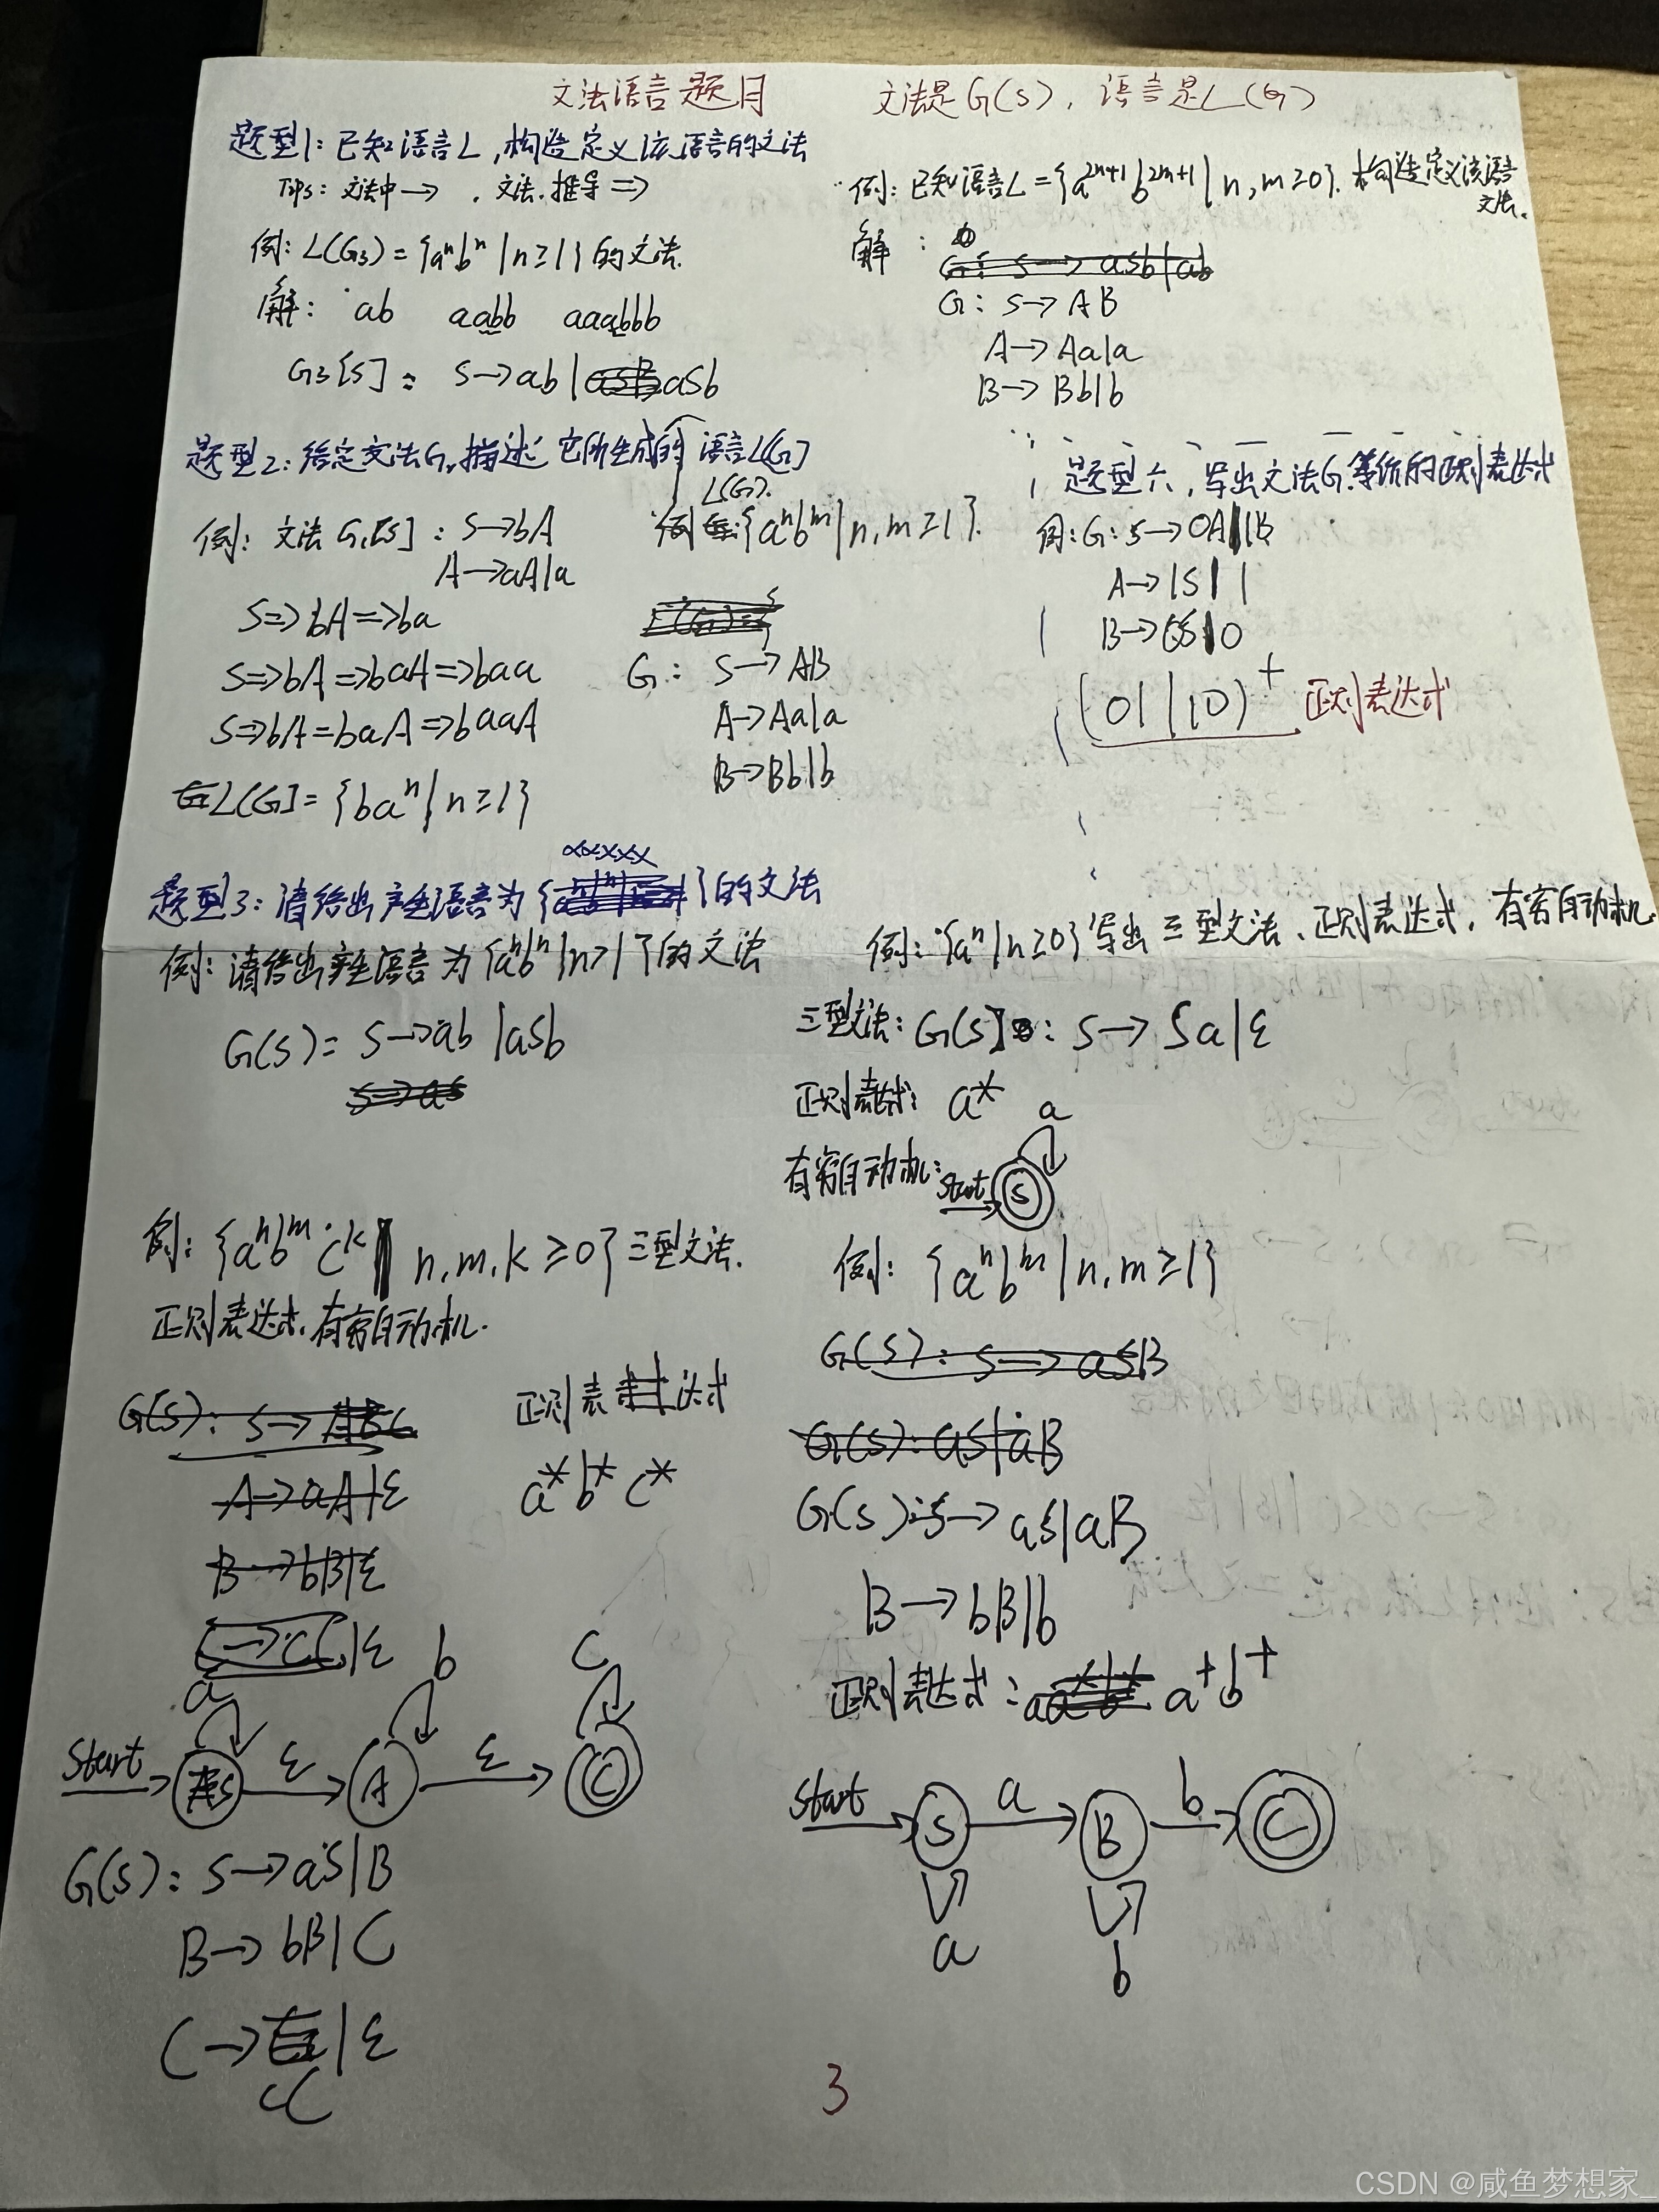 文法语言题目 文法是G(S)，语言是L(G)
题型1：已知语言L，构造定义该语言的文法
Tips：文法中→ . 文法.推导⇒
例：L(G3)={aⁿbⁿ|n≥1}的文法.
解： ab aabb aaabbb
G3[S]： S→ab|aSb
例：已知语言L={a²ⁿ⁺¹b²ᵐ⁺¹|n,m≥0}.构造定义该语
文法.
解：
G：S→asb|ab
G：S→AB
A→Aa|a
B→Bb|b
题型2：给定文法G，描述它所生成的语言L(G)
L(G).
例：文法G1[S]：S→bA
A→aA|a
S⇒bA⇒ba
S⇒bA⇒baA⇒baa
S⇒bA=baA⇒baaA
L(G)={baⁿ|n≥1}
例 {aⁿbᵐ|n,m≥1}.
G： S→AB
A→Aa|a
B→Bb|b
题型六，写出文法G等价的正则表达式
例：G：S→0A|1B
A→1S|1
B→0S|0
(01|10)⁺ 正则表达式
题型3：请给出产生语言为{xxxxx}的文法
例：请给出产生语言为{aⁿbⁿ|n≥1}的文法
G(S)= S→ab|aSb
S→aS
例：{aⁿ|n≥0}写出三型文法、正则表达式，有穷自动机.
三型文法：G(S]：S→Sa|ε
正则表达式：a*
a
有穷自动机：start S
例：{aⁿbᵐcᵏ| n,m,k≥0}三型文法.
正则表达式、有穷自动机.
G(S)：S→ABC
A→aA|ε
B→bB|ε
C→cC|ε
正则表达式
a*b*c*
a b c
start S ε A ε C
G(S)：S→aS|B
B→bB|C
C→ |ε
cC
例：{aⁿbᵐ|n,m≥1}
G(S)：S→aSB
G(S)：aS|aB
G(S)：S→aS|aB
B→bB|b
正则表达式： a⁺b⁺
start S a B b C
a b
3
CSDN @咸鱼梦想家_